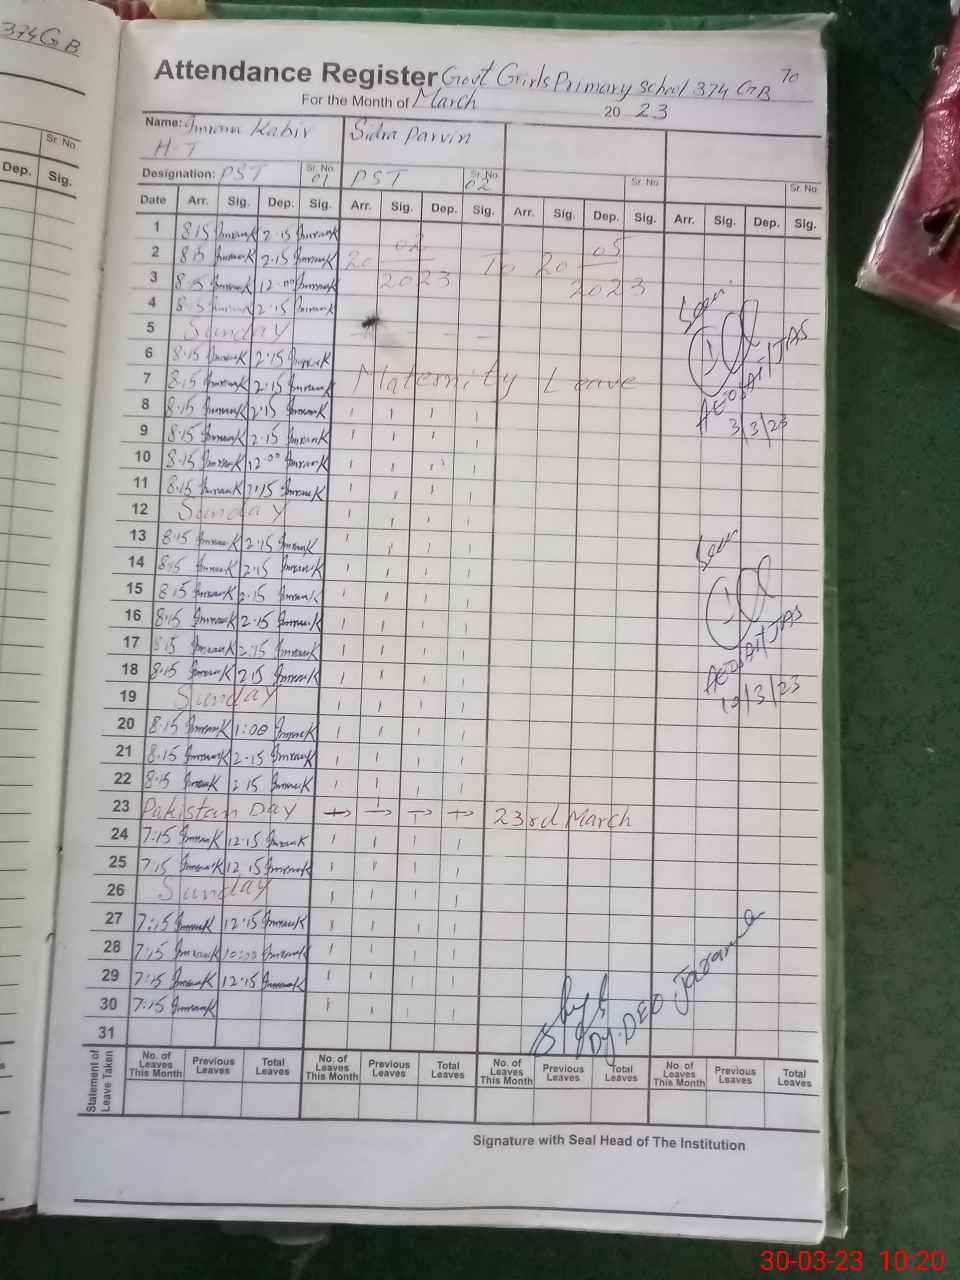 374 GB
Sr. No.
Dep. Sig.
70
Attendance Register Govt Girls Primary School 374 GB
For the Month of March 20 23
Name: Imrana Kabir Sidra Parvin
H.T
Designation: PST Sr. No. 01 PST Sr. No. 02 Sr. No. Sr. No.
Date Arr. Sig. Dep. Sig. Arr. Sig. Dep. Sig. Arr. Sig. Dep. Sig. Arr. Sig. Dep. Sig.
1 8.15 ImranK 2.15 ImranK
2 8.15 ImranK 2.15 ImranK 20 02 2023 To 20 05 2023
3 8.15 ImranK 12.00 ImranK
4 8.15 ImranK 2.15 ImranK Seen
5 Sunday
6 8.15 ImranK 2.15 ImranK
7 8.15 ImranK 2.15 ImranK Maternity Leave
8 8.15 ImranK 2.15 ImranK 3/3/23
9 8.15 ImranK 2.15 ImranK
10 8.15 ImranK 12.00 ImranK
11 8.15 ImranK 2.15 ImranK
12 Sunday
13 8.15 ImranK 2.15 ImranK Seen
14 8.15 ImranK 2.15 ImranK
15 8.15 ImranK 2.15 ImranK
16 8.15 ImranK 2.15 ImranK
17 8.15 ImranK 2.15 ImranK
18 8.15 ImranK 2.15 ImranK
19 Sunday
20 8.15 ImranK 1:00 ImranK
21 8.15 ImranK 2.15 ImranK
22 8.15 ImranK 2.15 ImranK
23 Pakistan Day 23rd March
24 7:15 ImranK 12.15 ImranK
25 7.15 ImranK 12.15 ImranK
26 Sunday
27 7:15 ImranK 12.15 ImranK
28 7:15 ImranK 10:00 ImranK
29 7:15 ImranK 12:15 ImranK
30 7:15 ImranK
31
Dy. DEO
Statement of Leave Taken
No. of Leaves This Month Previous Leaves Total Leaves No. of Leaves This Month Previous Leaves Total Leaves No. of Leaves This Month Previous Leaves Total Leaves No. of Leaves This Month Previous Leaves Total Leaves
Signature with Seal Head of The Institution
30-03-23 10:20